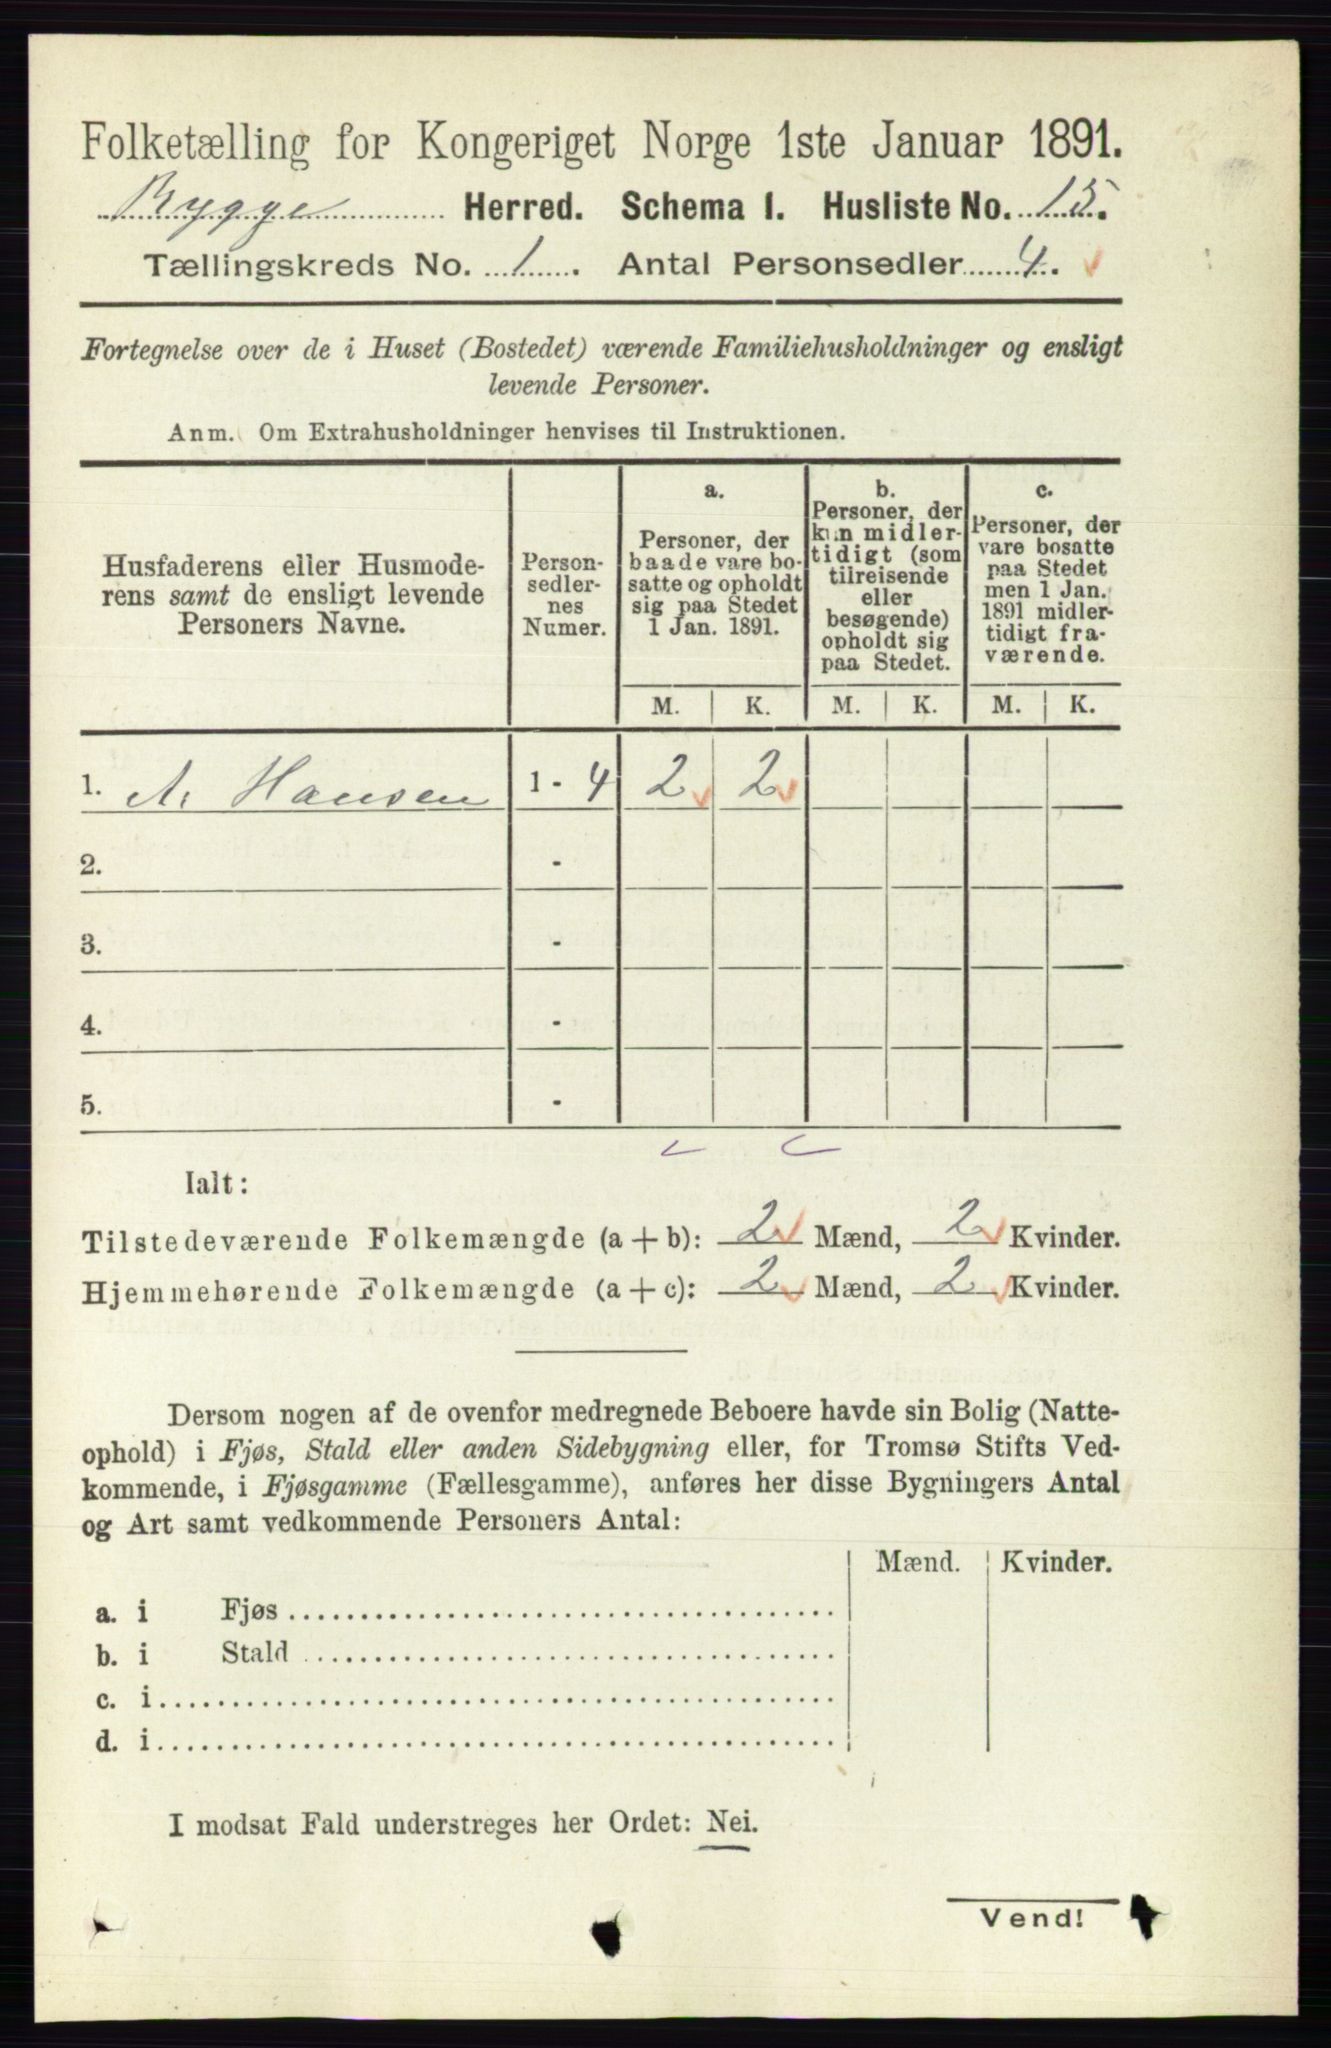 Folketælling for Kongeriget Norge 1ste Januar 1891.
Rygge Herred. Schema I. Husliste No. 15.
Tællingskreds No. 1. Antal Personsedler 4.
Fortegnelse over de i Huset (Bostedet) værende Familiehusholdninger og ensligt
levende Personer.
Anm. Om Extrahusholdninger henvises til Instruktionen.
Husfaderens eller Husmode-
rens samt de ensligt levende
Personers Navne.
Person-
sedler-
nes
Numer.
a.
Personer, der
baade vare bo-
satte og opholdt
sig paa Stedet
1 Jan. 1891.
b.
Personer, der
kun midler-
tidigt (som
tilreisende
eller
besøgende)
opholdt sig
paa Stedet.
c.
Personer, der
vare bosatte
paa Stedet
men 1 Jan.
1891 midler-
tidigt fra-
værende.
M. K. M. K. M. K.
1. A. Hansen 1 - 4 2 2
2. -
3. -
4. -
5. -
Ialt:
Tilstedeværende Folkemængde (a + b): 2 Mænd, 2 Kvinder.
Hjemmehørende Folkemængde (a + c): 2 Mænd, 2 Kvinder.
Dersom nogen af de ovenfor medregnede Beboere havde sin Bolig (Natte-
ophold) i Fjøs, Stald eller anden Sidebygning eller, for Tromsø Stifts Ved-
kommende, i Fjøsgamme (Fællesgamme), anføres her disse Bygningers Antal
og Art samt vedkommende Personers Antal:
Mænd. Kvinder.
a. i Fjøs
b. i Stald
c. i
d. i
I modsat Fald understreges her Ordet: Nei.
Vend!